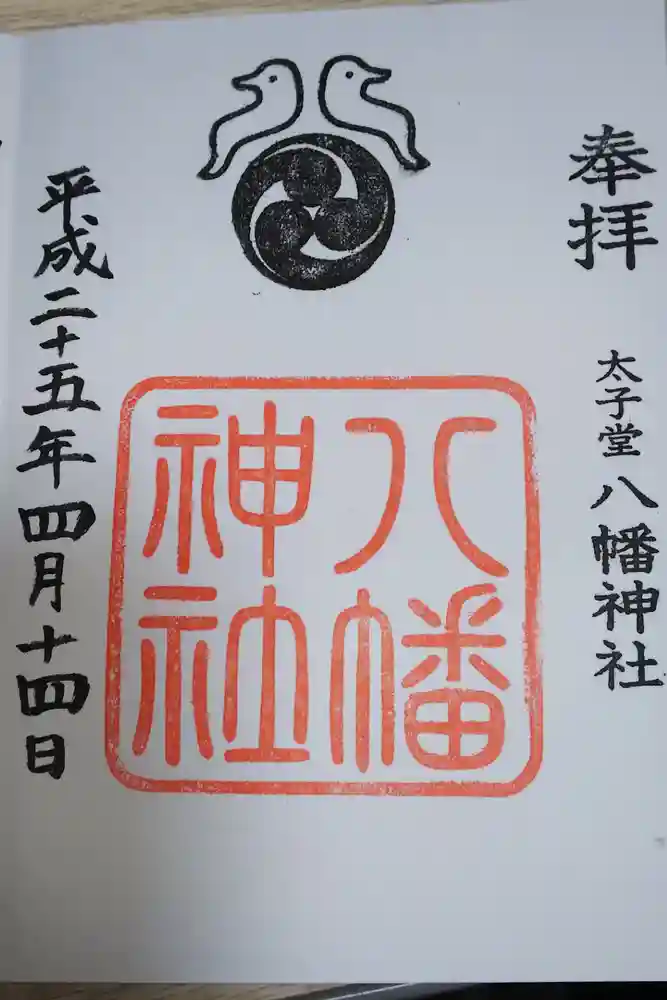 奉拝
太子堂八幡神社
八幡
神社
平成二十五年四月十四日